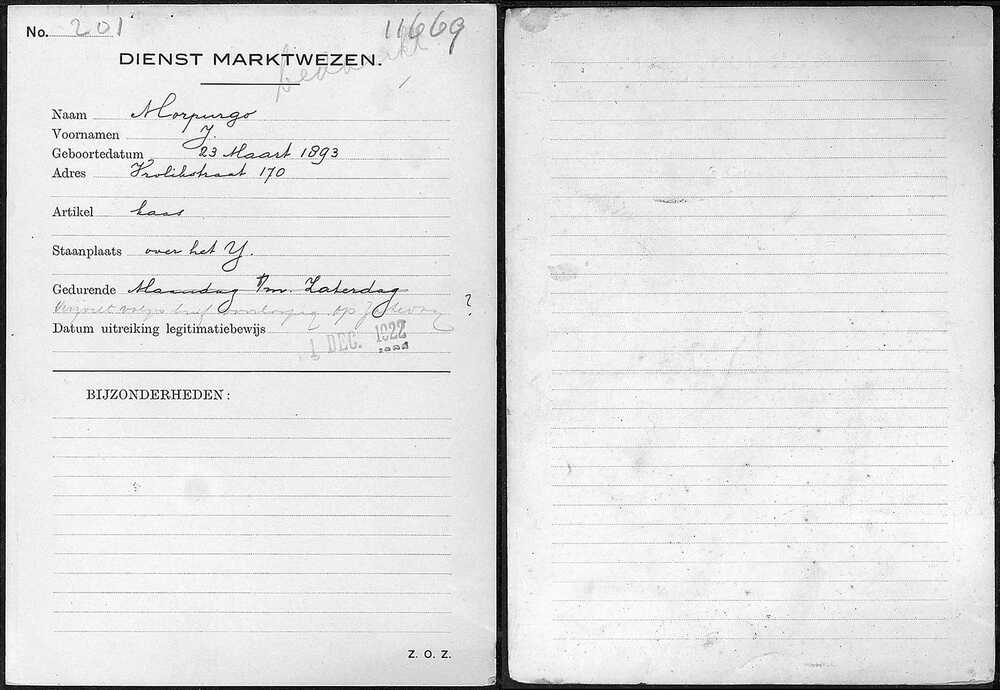 No. 201 11669
DIENST MARKTWEZEN.
Naam Morpurgo
Voornamen J.
Geboortedatum 23 Maart 1893
Adres Vrolikstraat 170
Artikel kaas
Staanplaats over het Y.
Gedurende Maandag t/m. Zaterdag
volgens brief voorloopig op ?
Datum uitreiking legitimatiebewijs
1 DEC. 1922
BIJZONDERHEDEN:
Z. O. Z.